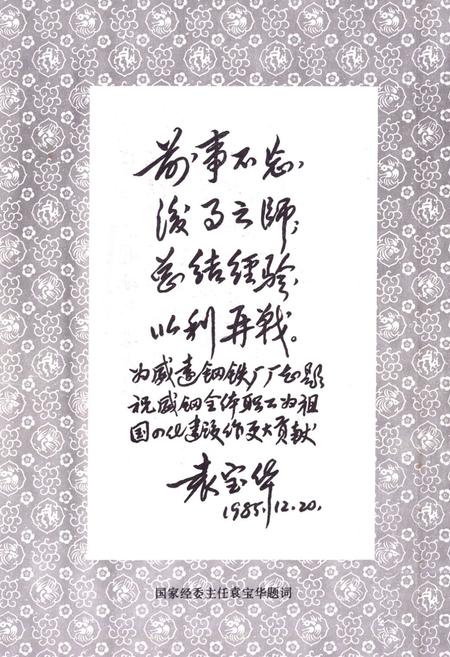 前事不忘，
后事之师；
总结经验，
以利再战。
为威远钢铁厂厂志题
祝威钢全体职工为祖
国四化建设作更大贡献
袁宝华
1985.12.20.
国家经委主任袁宝华题词